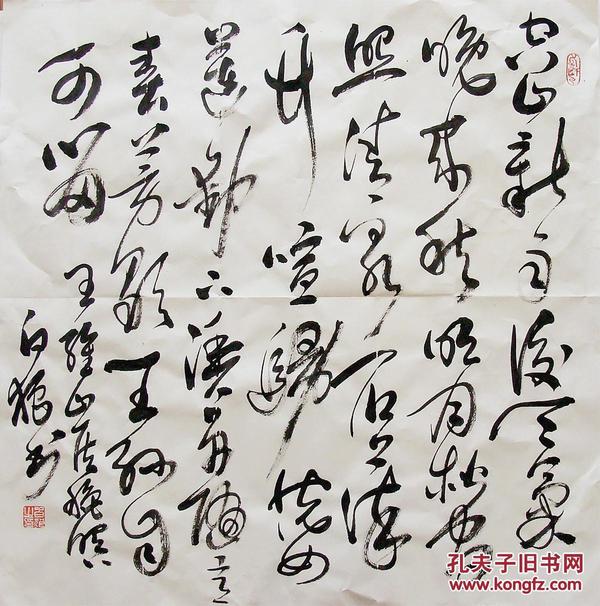 空山新雨後天氣
晚來秋明月松間
照清泉石上流
竹喧歸浣女
蓮動下漁舟隨意
春芳歇王孫自
可留 王維山居秋暝
白狼书
孔夫子旧书网
www.kongfz.com